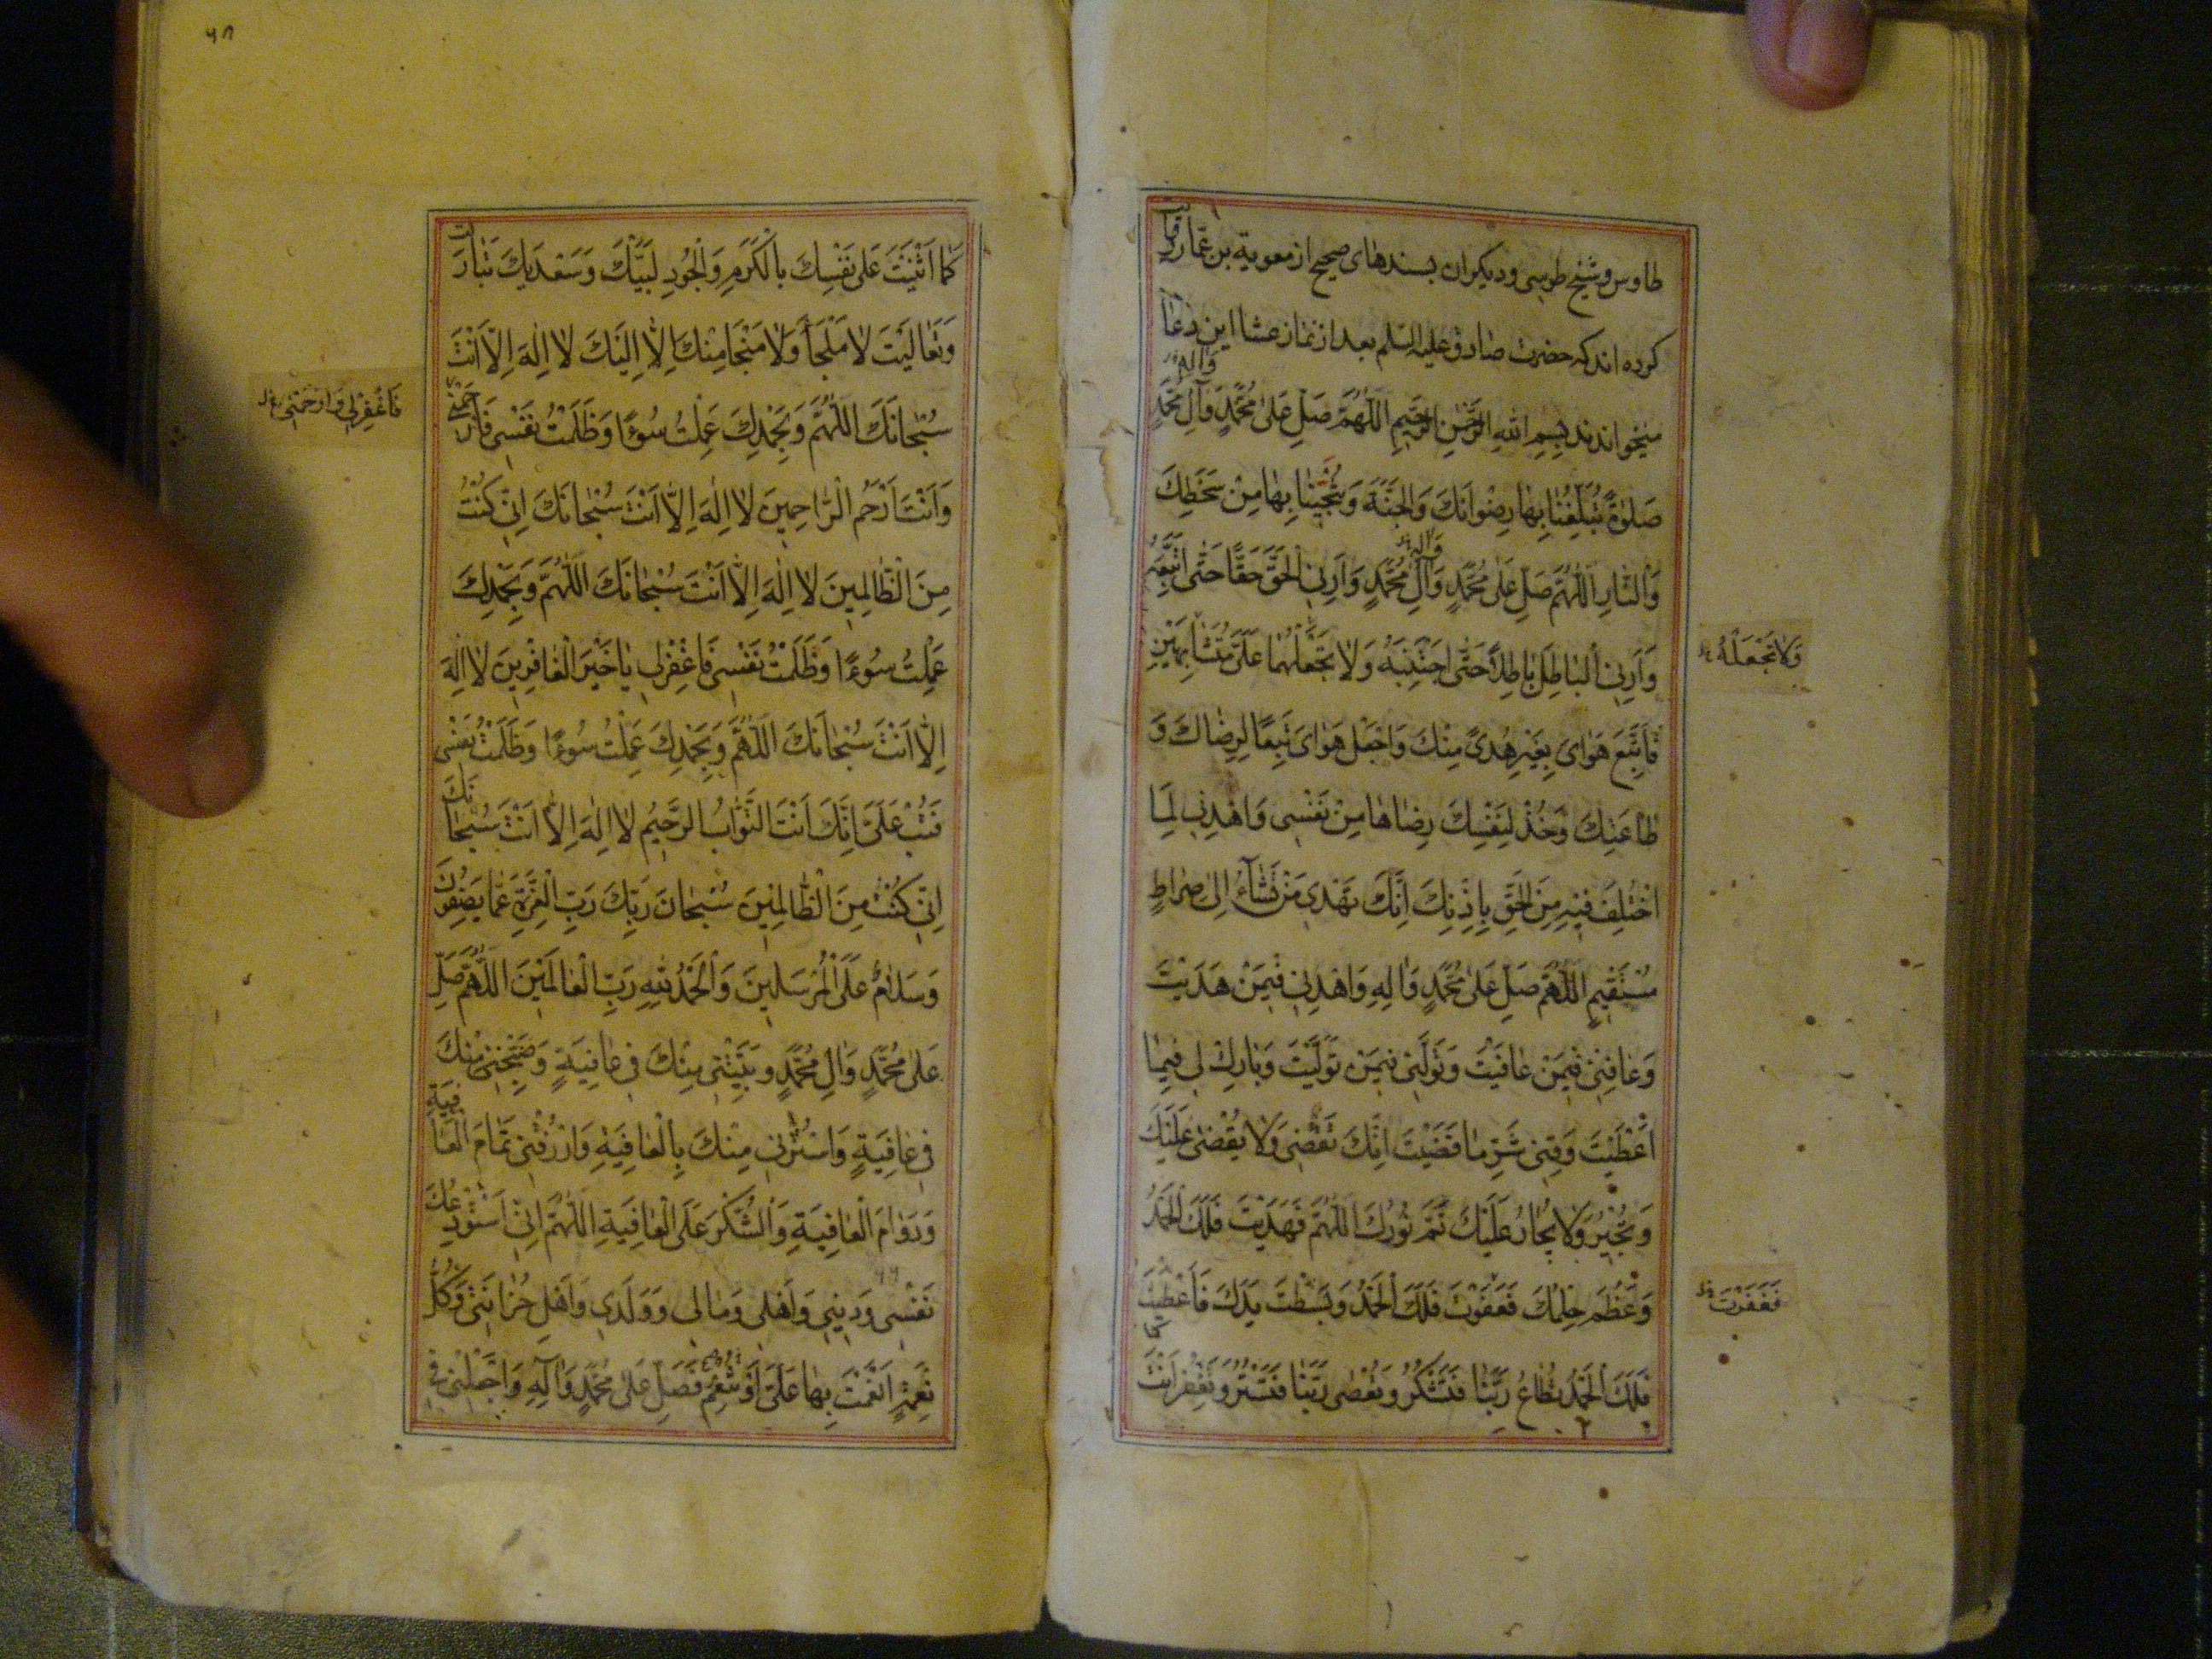 طاوس و شیخ طوسی و دیکران بسندهای صحیح از معویة بن عمار روایت
کرده اند که حضرت صادق علیه السّلم بعد از نماز عشا این دعا
وَالِهِ
میخواندند بِسْمِ اللهِ الرَّحْمٰنِ الرَّحِيمِ اَللّٰهُمَّ صَلِّ عَلىٰ مُحَمَّدٍ وَآلِ مُحَمَّدٍ
صَلوٰةً تُبَلِّغُنٰا بِهٰا رِضْوٰانَكَ وَالْجَنَّةَ وَتُنَجِّينٰا بِهٰا مِنْ سَخَطِكَ
وَالِهِ
وَالنّٰارِ اَللّٰهُمَّ صَلِّ عَلىٰ مُحَمَّدٍ وَآلِ مُحَمَّدٍ وَاَرِنِى الْحَقَّ حَقًّا حَتّٰى اَتَّبِعَهُ
وَاَرِنِى الْبٰاطِلَ بٰاطِلاً حَتّٰى اَجْتَنِبَهُ وَلاٰ تَجْعَلْهُمٰا عَلَىَّ مُتَشٰابِهَيْنِ
وَلاٰ تَجْعَلْهُ
فَاَتَّبِعَ هَوٰاىَ بِغَيْرِ هُدىً مِنْكَ وَاجْعَلْ هَوٰاىَ تَبِعًا لِرِضٰاكَ وَ
طٰاعَتِكَ وَخُذْ لِنَفْسِكَ رِضٰاهٰا مِنْ نَفْسِى وَاهْدِنِى لِمَا
اخْتُلِفَ فِيهِ مِنَ الْحَقِّ بِاِذْنِكَ اِنَّكَ تَهْدِى مَنْ تَشٰآءُ اِلىٰ صِرٰاطٍ
مُسْتَقِيمٍ اَللّٰهُمَّ صَلِّ عَلىٰ مُحَمَّدٍ وَالِهِ وَاهْدِنِى فِيمَنْ هَدَيْتَ
وَعٰافِنِى فِيمَنْ عٰافَيْتَ وَتَوَلَّنِى فِيمَنْ تَوَلَّيْتَ وَبٰارِكْ لِى فِيمٰا
اَعْطَيْتَ وَقِنِى شَرَّ مٰا قَضَيْتَ اِنَّكَ تَقْضِى وَلاٰ يُقْضىٰ عَلَيْكَ
وَتُجِيْرُ وَلاٰ يُجٰارُ عَلَيْكَ تَمَّ نُورُكَ اللّٰهُمَّ فَهَدَيْتَ فَلَكَ الْحَمْدُ
وَعَظُمَ حِلْمُكَ فَعَفَوْتَ فَلَكَ الْحَمْدُ وَبَسَطْتَ يَدَكَ فَاَعْطَيْتَ
فَغَفَرْتَ
فَلَكَ الْحَمْدُ تُطٰاعُ رَبَّنٰا فَتَشْكُرُ وَتُعْصٰى رَبَّنٰا فَتَسْتُرُ وَتَغْفِرُ اَنْتَ
كَمٰا اَثْنَيْتَ عَلىٰ نَفْسِكَ بِالْكَرَمِ وَالْجُودِ لَبَّيْكَ وَسَعْدَيْكَ تَبٰارَكْتَ
وَتَعٰالَيْتَ لاٰ مَلْجَأَ وَلاٰ مَنْجٰا مِنْكَ اِلاّٰ اِلَيْكَ لاٰ اِلٰهَ اِلاّٰ اَنْتَ
سُبْحٰانَكَ اللّٰهُمَّ وَبِحَمْدِكَ عَمِلْتُ سُوءًا وَظَلَمْتُ نَفْسِى فَارْحَمْنِى
فَاغْفِرْلِى وَارْحَمْنِى
وَاَنْتَ اَرْحَمُ الرّٰاحِمِينَ لاٰ اِلٰهَ اِلاّٰ اَنْتَ سُبْحٰانَكَ اِنِّى كُنْتُ
مِنَ الظّٰالِمِينَ لاٰ اِلٰهَ اِلاّٰ اَنْتَ سُبْحٰانَكَ اللّٰهُمَّ وَبِحَمْدِكَ
عَمِلْتُ سُوءًا وَظَلَمْتُ نَفْسِى فَاغْفِرْلِى يٰا خَيْرَ الْغٰافِرِينَ لاٰ اِلٰهَ
اِلاّٰ اَنْتَ سُبْحٰانَكَ اللّٰهُمَّ وَبِحَمْدِكَ عَمِلْتُ سُوءًا وَظَلَمْتُ نَفْسِى
فَتُبْ عَلَىَّ اِنَّكَ اَنْتَ التَّوّٰابُ الرَّحِيمُ لاٰ اِلٰهَ اِلاّٰ اَنْتَ سُبْحٰانَكَ
اِنِّى كُنْتُ مِنَ الظّٰالِمِيْنَ سُبْحٰانَ رَبِّكَ رَبِّ الْعِزَّةِ عَمّٰا يَصِفُونَ
وَسَلاٰمٌ عَلَى الْمُرْسَلِينَ وَالْحَمْدُ لِلّٰهِ رَبِّ الْعٰالَمِيْنَ اَللّٰهُمَّ صَلِّ
عَلىٰ مُحَمَّدٍ وَاٰلِ مُحَمَّدٍ وَبَيِّتْنِى مِنْكَ فِى عٰافِيَةٍ وَصَبِّحْنِى مِنْكَ
فِى عٰافِيَةٍ وَاسْتُرْنِى مِنْكَ بِالْعٰافِيَةِ وَارْزُقْنِى تَمٰامَ الْعٰافِيَةِ
وَدَوٰامَ الْعٰافِيَةِ وَالشُّكْرَ عَلَى الْعٰافِيَةِ اَللّٰهُمَّ اِنِّى اَسْتَوْدِعُكَ
نَفْسِى وَدِينِى وَاَهْلِى وَمٰالِى وَوَلَدِى وَاَهْلَ حُزٰانَتِى وَكُلَّ
نِعْمَةٍ اَنْعَمْتَ بِهٰا عَلَىَّ اَوْ تُنْعِمُ فَصَلِّ عَلىٰ مُحَمَّدٍ وَآلِهِ وَاجْعَلْنِى فِى